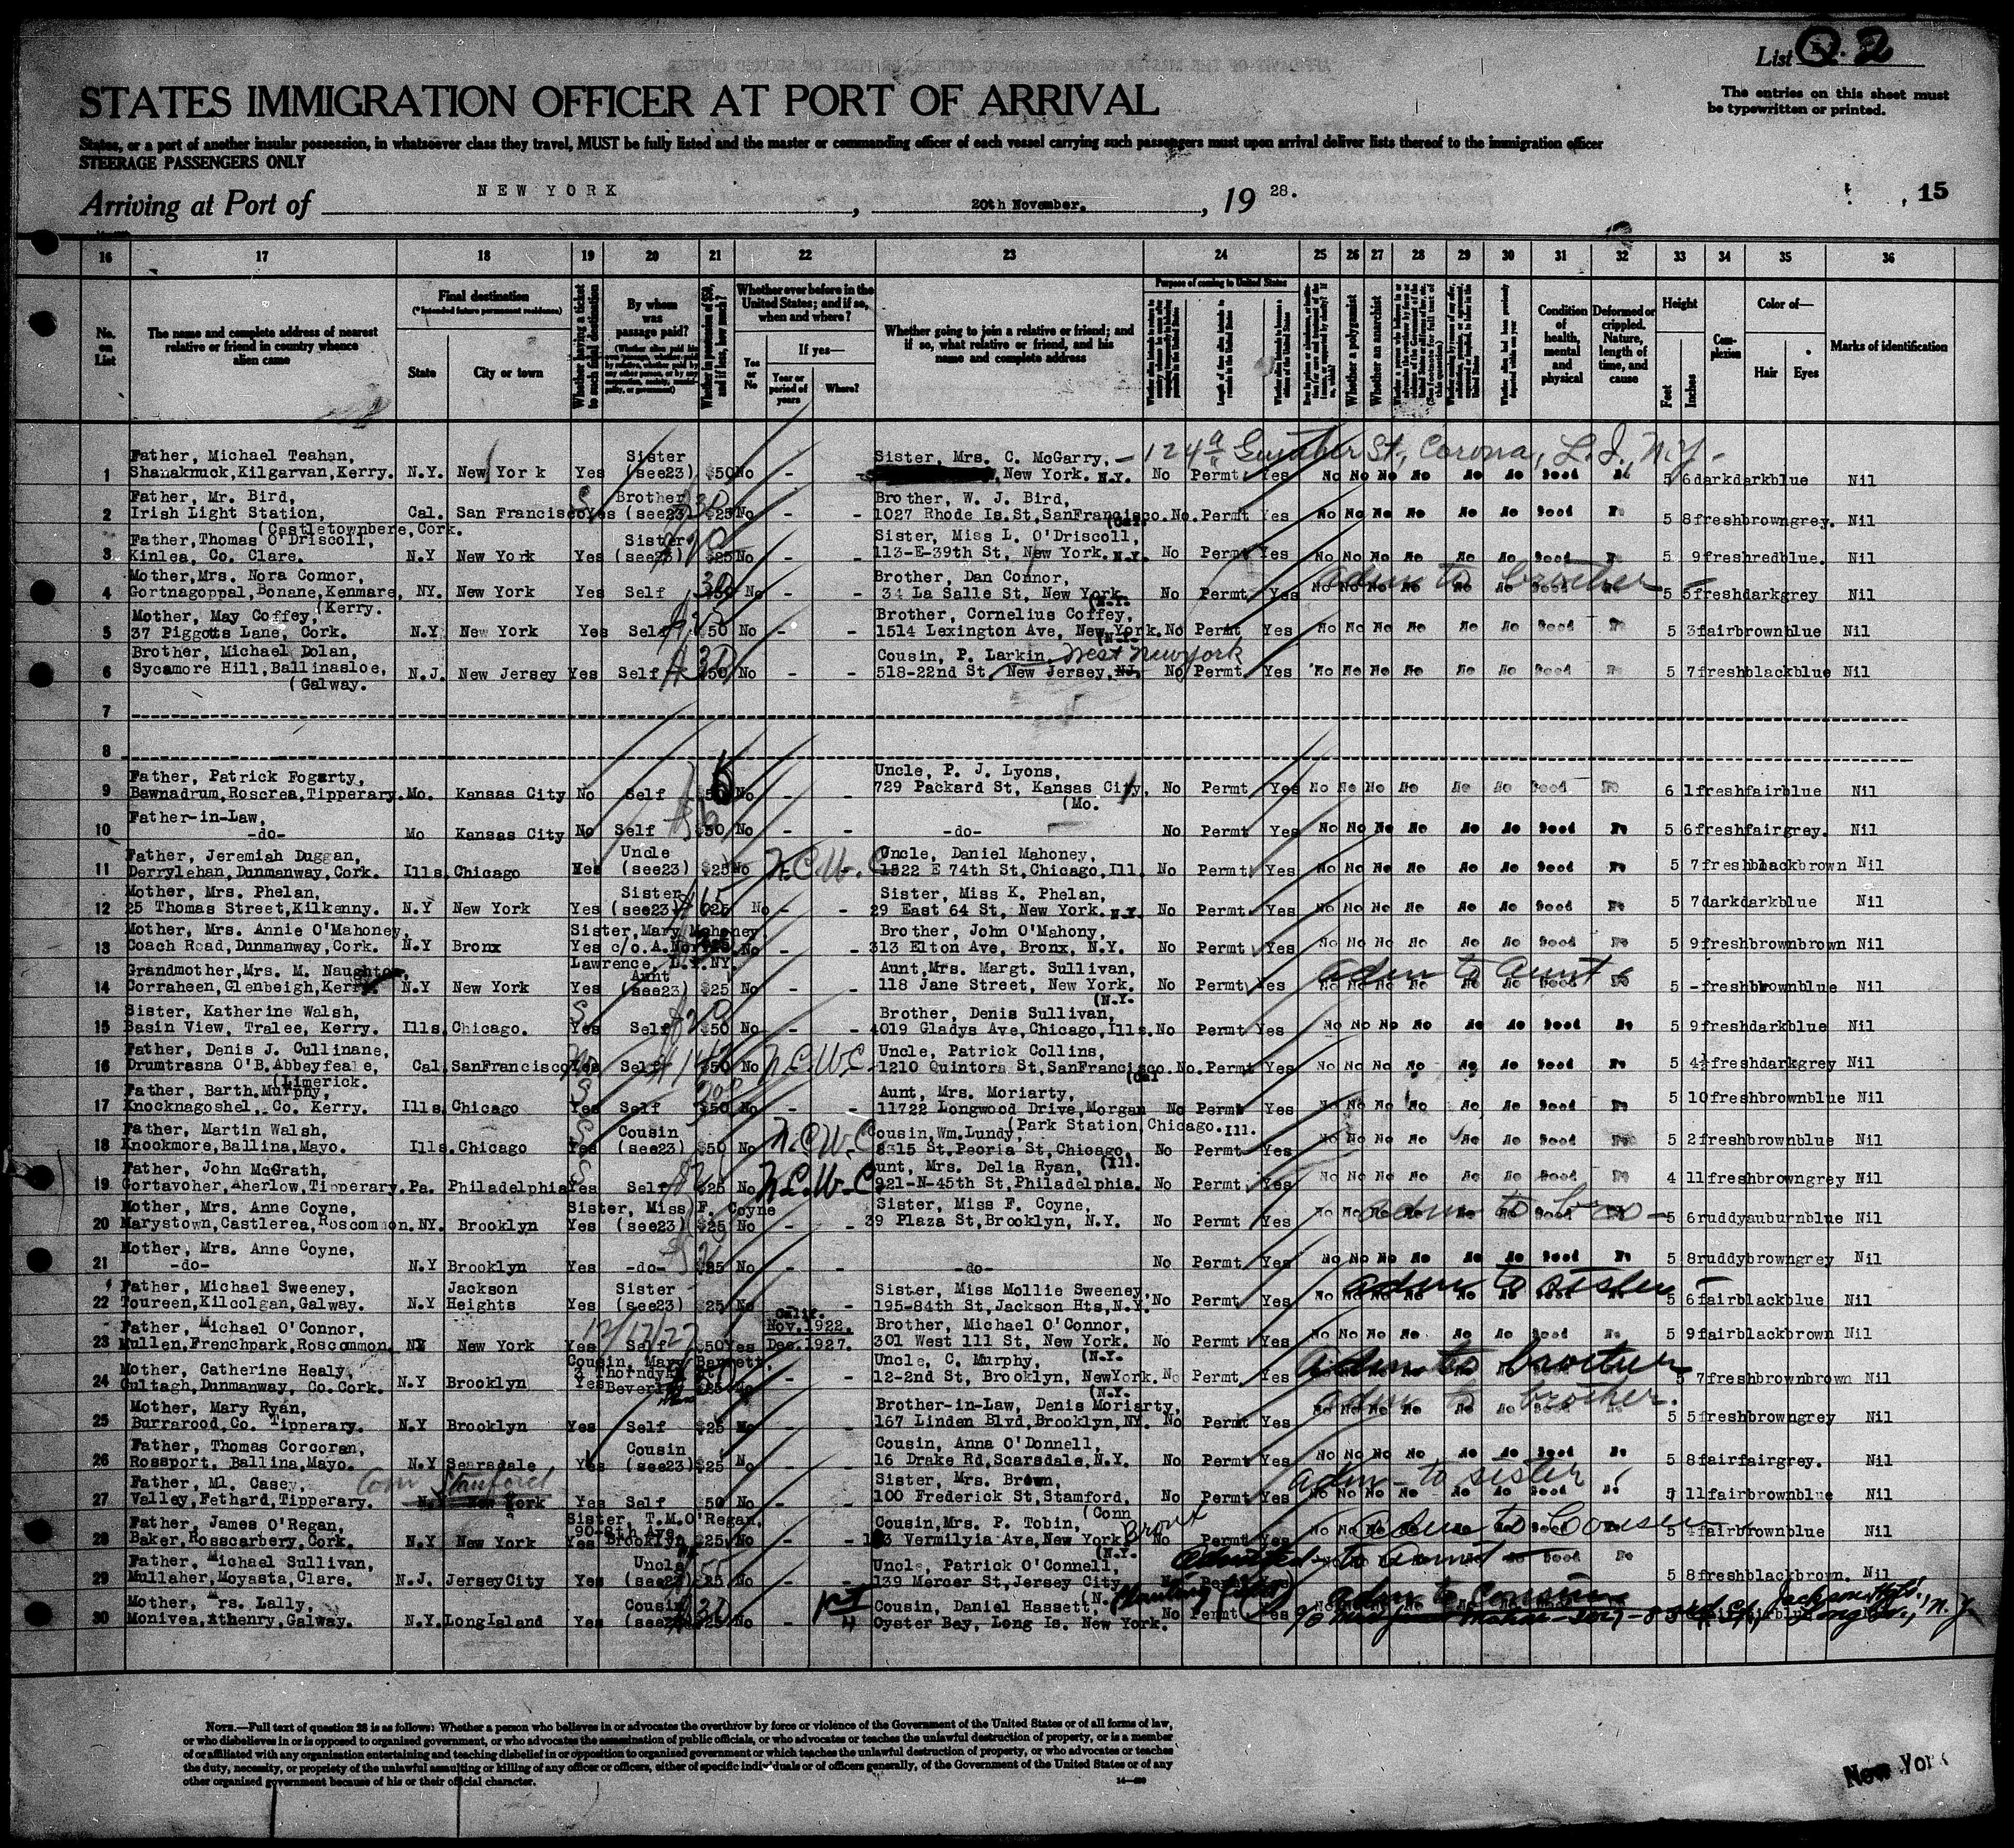 List Q. 2
The entries on this sheet must
be typewritten or printed.
STATES IMMIGRATION OFFICER AT PORT OF ARRIVAL
States, or a port of another insular possession, in whatsoever class they travel, MUST be fully listed and the master or commanding officer of each vessel carrying such passengers must upon arrival deliver lists thereof to the immigration officer
STEERAGE PASSENGERS ONLY
Arriving at Port of NEW YORK, 20th November., 19 28.
15
16 17 18 19 20 21 22 23 24 25 26 27 28 29 30 31 32 33 34 35 36
No. on List
The name and complete address of nearest relative or friend in country whence alien came
Final destination
(*Intended future permanent residence)
State
City or town
Whether having a ticket to such final destination
By whom was passage paid?
Whether in possession of $50, and if less, how much?
Whether ever before in the United States; and if so, when and where?
Yes or No
If yes—
Year or period of years
Where?
Whether going to join a relative or friend; and if so, what relative or friend, and his name and complete address
Purpose of coming to United States
Whether a polygamist
Whether an anarchist
Condition of health, mental and physical
Deformed or crippled. Nature, length of time, and cause
Height
Feet
Inches
Complexion
Color of—
Hair
Eyes
Marks of identification
Father, Michael Teahan, Sister Sister, Mrs. C. McGarry, — 124a Gunther St., Corona, L.I., N.Y.
1 Shanaknuck, Kilgarvan, Kerry. N.Y. New York Yes (see23) $50 No - - , New York. N.Y. No Permt Yes No No No No No No Good No 5 6 dark dark blue Nil
Father, Mr. Bird, Brother Brother, W. J. Bird,
2 Irish Light Station, Cal. San Francisco Yes (see23) $25 No - 1027 Rhode Is.St, SanFrancisco. No. Permt Yes No No No No No No Good No 5 8 fresh brown grey. Nil
(Castletownbere, Cork. (Cal.
Father, Thomas O'Driscoll, Sister Sister, Miss L. O'Driscoll,
3 Kinlea, Co. Clare. N.Y New York Yes (see23) $25 No - - 113-E-39th St, New York. N.Y. No Permt Yes No No No No No No Good No 5 9 fresh red blue. Nil
Mother, Mrs. Nora Connor, Brother, Dan Connor, adm to brother
4 Gortnagoppal, Bonane, Kenmare, NY. New York Yes Self No - - 34 La Salle St, New York. No Permt Yes No No No No No No Good No 5 5 fresh dark grey Nil
(Kerry. (N.Y.
Mother, May Coffey, Brother, Cornelius Coffey,
5 37 Piggotts Lane, Cork. N.Y New York Yes Self $50 No - - 1514 Lexington Ave, New York. No Permt Yes No No No No No No Good No 5 3 fair brown blue Nil
(N.Y.
Brother, Michael Dolan, Cousin, P. Larkin, West New York
6 Sycamore Hill, Ballinasloe, N.J. New Jersey Yes Self $50 No - - 518-22nd St, New Jersey, NJ. No Permt Yes No No No No No No Good No 5 7 fresh black blue Nil
(Galway.
7
8
Father, Patrick Fogarty, Uncle, P. J. Lyons,
9 Bawnadrum, Roscrea, Tipperary. Mo. Kansas City No Self $50 No - - 729 Packard St, Kansas City, No Permt Yes No No No No No No Good No 6 1 fresh fair blue Nil
(Mo.
Father-in-Law,
10 -do- Mo Kansas City No Self $50 No - - -do- No Permt Yes No No No No No No Good No 5 6 fresh fair grey. Nil
Father, Jeremiah Duggan, Uncle Uncle, Daniel Mahoney,
11 Derrylehan, Dunmanway, Cork. Ills. Chicago Yes (see23) $25 No N.C.W.C. 1522 E 74th St, Chicago, Ill. No Permt Yes No No No No No No Good No 5 7 fresh black brown Nil
Mother, Mrs. Phelan, Sister Sister, Miss K. Phelan,
12 25 Thomas Street, Kilkenny. N.Y New York Yes (see23) $25 No - - 29 East 64 St, New York. N.Y. No Permt Yes No No No No No No Good No 5 7 dark dark blue Nil
Mother, Mrs. Annie O'Mahoney, Sister, Mary Mahoney Brother, John O'Mahony,
13 Coach Road, Dunmanway, Cork. N.Y Bronx Yes c/o. A. No - - 313 Elton Ave, Bronx, N.Y. No Permt Yes No No No No No No Good No 5 9 fresh brown brown Nil
Lawrence, L.I. NY.
Grandmother, Mrs. M. Naughton, Aunt Aunt, Mrs. Margt. Sullivan, adm to aunt
14 Corraheen, Glenbeigh, Kerry. N.Y New York Yes (see23) $25 No - - 118 Jane Street, New York. No Permt Yes No No No No No No Good No 5 - fresh brown blue Nil
(N.Y.
Sister, Katherine Walsh, Brother, Denis Sullivan,
15 Basin View, Tralee, Kerry. Ills. Chicago. Yes Self $50 No - - 4019 Gladys Ave, Chicago, Ills. No Permt Yes No No No No No No Good No 5 9 fresh dark blue Nil
Father, Denis J. Cullinane, Uncle, Patrick Collins,
16 Drumtrasna O'B. Abbeyfeale, Cal. SanFrancisco Yes Self $50 No N.C.W.C. 1210 Quintora St, SanFrancisco. No. Permt Yes No No No No No No Good No 5 4½ fresh dark grey Nil
(Limerick. (Cal
Father, Barth. Murphy, Aunt, Mrs. Moriarty,
17 Knocknagoshel, Co. Kerry. Ills. Chicago Yes Self $50 No - - 11722 Longwood Drive, Morgan No Permt Yes No No No No No No Good No 5 10 fresh brown blue Nil
(Park Station, Chicago. Ill.
Father, Martin Walsh, Cousin Cousin, Wm. Lundy,
18 Knockmore, Ballina, Mayo. Ills. Chicago Yes (see23) $50 No N.C.W.C 8315 St. Peoria St, Chicago, No Permt Yes No No No No No No Good No 5 2 fresh brown blue Nil
(Ill.
Father, John McGrath, Aunt, Mrs. Delia Ryan,
19 Cortavoher, Aherlow, Tipperary. Pa. Philadelphia Yes Self $25 No N.C.W.C. 921-N-45th St, Philadelphia. No Permt Yes No No No No No No Good No 4 11 fresh brown grey Nil
Mother, Mrs. Anne Coyne, Sister, Miss F. Coyne Sister, Miss F. Coyne, adm to bro-
20 Marystown, Castlerea, Roscommon. NY. Brooklyn Yes (see23) $25 No - - 39 Plaza St, Brooklyn, N.Y. No Permt Yes No No No No No No Good No 5 6 ruddy auburn blue Nil
Mother, Mrs. Anne Coyne,
21 -do- N.Y Brooklyn Yes -do- $25 No - -do- No Permt Yes No No No No No No Good No 5 8 ruddy brown grey Nil
Father, Michael Sweeney, Jackson Sister Sister, Miss Mollie Sweeney, adm to sister
22 Toureen, Kilcolgan, Galway. N.Y Heights Yes (see23) $25 No - 195-84th St, Jackson Hts, N.Y. No Permt Yes No No No No No No Good No 5 6 fair black blue Nil
Father, Michael O'Connor, 12/17/27 Calif. Nov. 1922. Brother, Michael O'Connor,
23 Mullen, Frenchpark, Roscommon NY New York Yes Self $50 Yes Dec. 1927. 301 West 111 St, New York. No Permt Yes No No No No No No Good No 5 9 fair black brown Nil
(N.Y.
Mother, Catherine Healy, Cousin, Mary Barrett, Uncle, C. Murphy, adm to brother
24 Cultagh, Dunmanway, Co. Cork. N.Y Brooklyn Yes 3 Thorndyke Beverly $25 No 12-2nd St, Brooklyn, NewYork. No Permt Yes 5 7 fresh brown brown Nil
(N.Y.
Mother, Mary Ryan, Brother-in-Law, Denis Moriarty, adm to brother.
25 Burrarood, Co. Tipperary. N.Y Brooklyn Yes Self $25 No - - 167 Linden Blvd, Brooklyn, NY. No Permt Yes No No No No No No Good No 5 5 fresh brown grey Nil
Father, Thomas Corcoran, Cousin Cousin, Anna O'Donnell,
26 Rossport, Ballina, Mayo. N.Y Scarsdale Yes (see23) $25 No - - 16 Drake Rd, Scarsdale, N.Y. No Permt Yes No No No No No No Good No 5 8 fair fair grey. Nil
Father, Ml. Casey, Conn Stanford Sister, Mrs. Brown, adm to sister
27 Valley, Fethard, Tipperary. N.Y New York Yes Self $50 No - - 100 Frederick St, Stamford, No Permt Yes No No No No No No Good No 5 11 fair brown blue Nil
(Conn
Father, James O'Regan, Sister, T.M. O'Regan, 90-8th Ave. Cousin, Mrs. P. Tobin, Bronx adm to Cousin
28 Baker, Rosscarbery, Cork. N.Y New York Yes Brooklyn $25 No - - Vermilyia Ave, New York. No Permt Yes 5 4 fair brown blue Nil
(N.Y.
Father, Michael Sullivan, Uncle Uncle, Patrick O'Connell, admitted to Aunt
29 Mullaher, Moyasta, Clare. N.J. JerseyCity Yes (see23) $25 No - - 139 Mercer St, Jersey City 5 8 fresh black brown. Nil
Mother, Mrs. Lally, Cousin Cousin, Daniel Hassett, adm to cousin
30 Monivea, Athenry, Galway. N.Y. LongIsland Yes (see23) $25 No - Oyster Bay, Long Is. New York. No Permt Yes Jackson Hts., Long Is., N.Y.
NOTE.—Full text of question 28 is as follows: Whether a person who believes in or advocates the overthrow by force or violence of the Government of the United States or of all forms of law,
or who disbelieves in or is opposed to organized government, or who advocates the assassination of public officials, or who advocates or teaches the unlawful destruction of property, or is a member
of or affiliated with any organization entertaining and teaching disbelief in or opposition to organized government or which teaches the unlawful destruction of property, or who advocates or teaches
the duty, necessity, or propriety of the unlawful assaulting or killing of any officer or officers, either of specific individuals or of officers generally, of the Government of the United States or of any
other organized government because of his or their official character.
New York